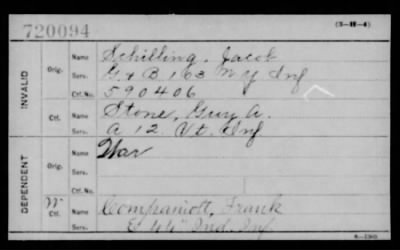 720094
(3-H-4)
INVALID
Orig.
Name Schilling, Jacob
Serv. G & B 103 N Y Inf
Ctf. No. 590406
Ctf.
Name Stone, Guy A.
Serv. A 12. Vt. Inf
DEPENDENT
Orig.
Name War
Serv.
Ctf. No.
W
Ctf.
Name Companiott, Frank
Serv. E 44" Ind. Inf